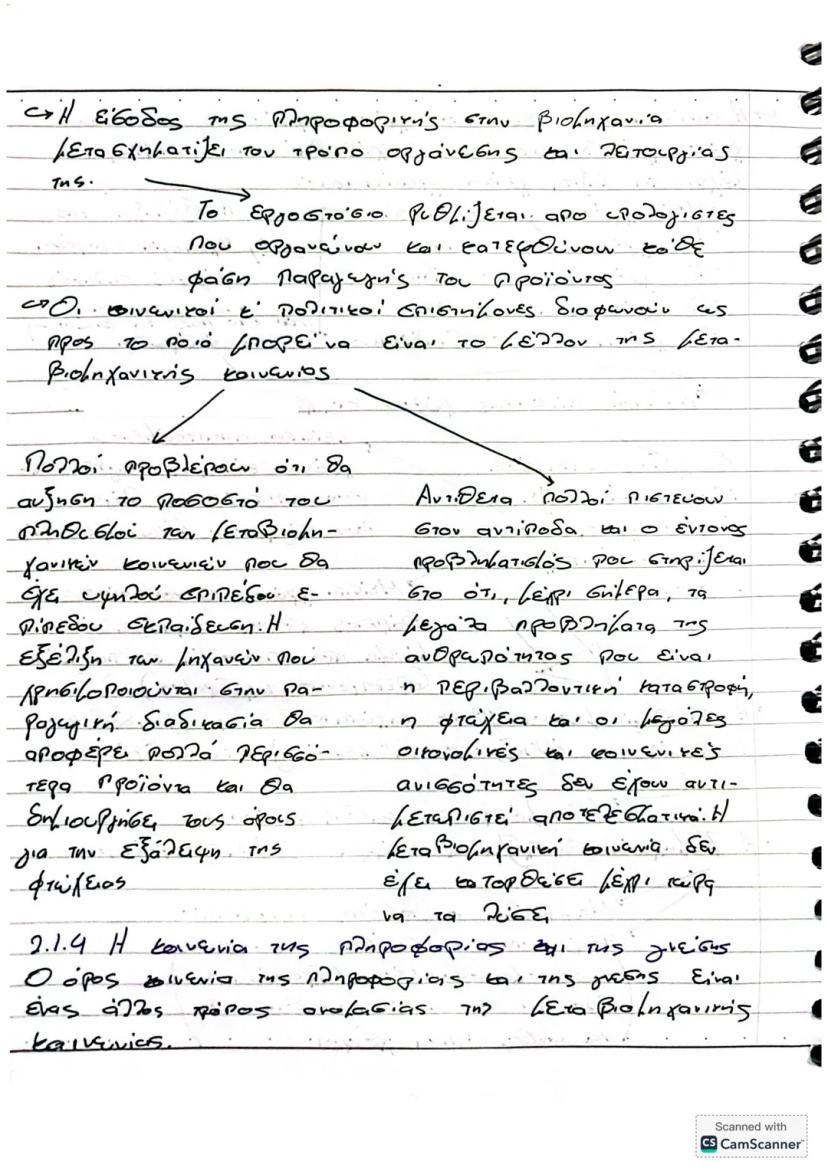 ↪ Η είσοδος της πληροφορικής στην βιομηχανία
μετασχηματίζει τον τρόπο οργάνωσης και λειτουργίας
της.
Το εργοστάσιο ρυθμίζεται απο υπολογιστες
που οργανώνουν και κατευθύνουν κάθε
φάση παραγωγής του προϊόντος
↪ Οι κοινωνικοί κ' πολιτικοί επιστήμονες διαφωνούν ως
προς το ποιό μπορεί να είναι το μέλλον της μετα-
βιομηχανικής κοινωνίας
Πολλοί προβλέπουν ότι θα
αυξηση το ποσοστό του
πληθυσμού των μεταβιομη-
χανικών κοινωνιών που θα
έχει υψηλού επιπέδου ε-
πίπεδου εκπαίδευση. Η
εξέλιξη των μηχανών που
χρησιμοποιούνται στην πα-
ραγωγική διαδικασία θα
αποφέρει πολλά περισσό-
τερα προϊόντα και θα
δημιουργήσει τους όρους
για την εξάλειψη της
φτώχειας
Αντιθετα πολλοί πιστευουν
στον αντίποδα και ο έντονος
προβληματισμός που στηρίζεται
στο ότι, μέχρι σήμερα, τα
μεγάλα προβλήματα της
ανθρωπότητας που είναι
η περιβαλλοντική καταστροφή,
η φτώχεια και οι μεγάλες
οικονομικές και κοινωνικές
ανισσότητες δεν έχουν αντι-
μεταπιστεί αποτελεσματικά. Η
μεταβιομηχανική κοινωνία δεν
έχει κατορθώσει μέχρι τώρα
να τα λύσει
2.1.4 Η κοινωνία της πληροφορίας και της γνώσης
Ο όρος κοινωνία της πληροφορίας και της γνωσης είναι
ένας άλλος τρόπος ονομασίας της μεταβιομηχανικής
κοινωνίας.
Scanned with
CS CamScanner